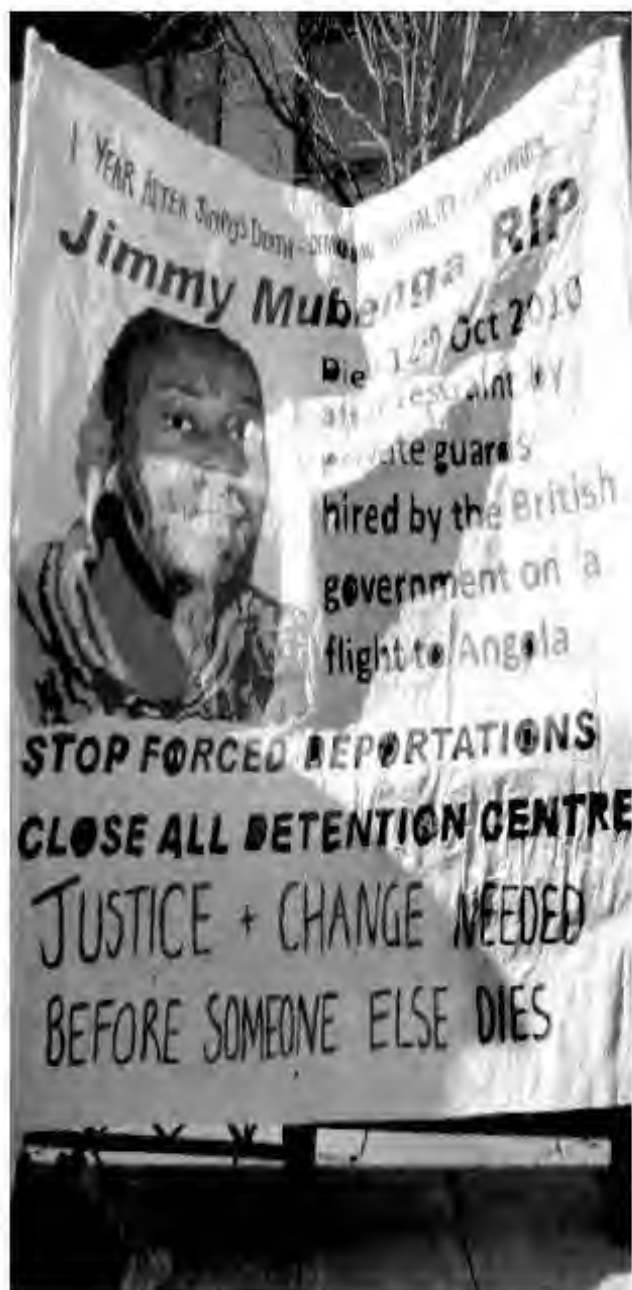 1 YEAR AFTER JIMMY'S DEATH
Jimmy Mubenga RIP
Died 12th Oct 2010
after restraint by
private guards
hired by the British
government on a
flight to Angola
STOP FORCED DEPORTATIONS
CLOSE ALL DETENTION CENTRE
JUSTICE + CHANGE NEEDED
BEFORE SOMEONE ELSE DIES